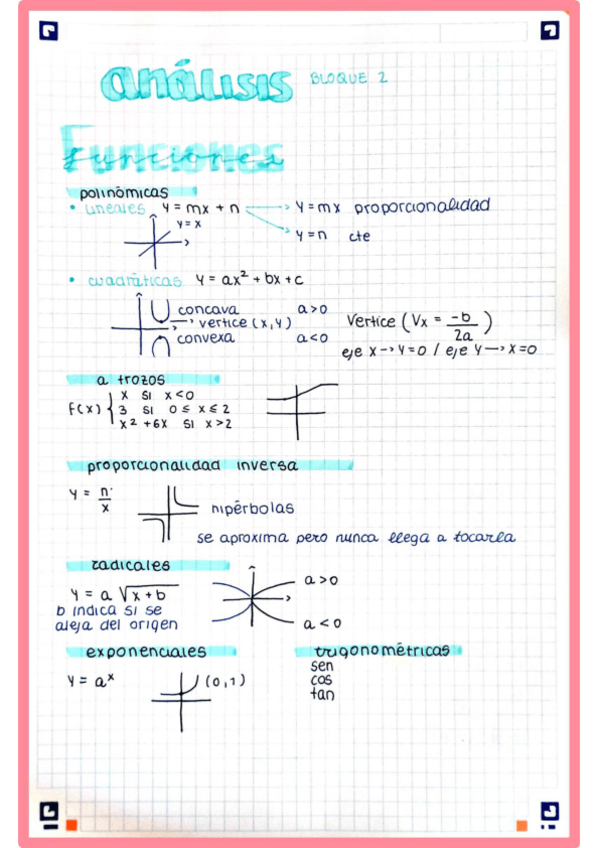 análisis BLOQUE 2
Funciones
polinómicas
• lineales y = mx + n → y = mx proporcionalidad
y = x
→ y = n cte
• cuadráticas y = ax² + bx + c
concava a > 0
→ vertice (x, y)
convexa a < 0
Vertice (Vx = -b/2a)
eje x → y = 0 / eje y → x = 0
a trozos
F(x) { x si x < 0
3 si 0 ≤ x ≤ 2
x² + 6x si x > 2
proporcionalidad inversa
y = n/x
hipérbolas
se aproxima pero nunca llega a tocarla
radicales
y = a √x + b
b indica si se
aleja del origen
a > 0
a < 0
exponenciales
y = aˣ
(0, 1)
trigonométricas
sen
cos
tan